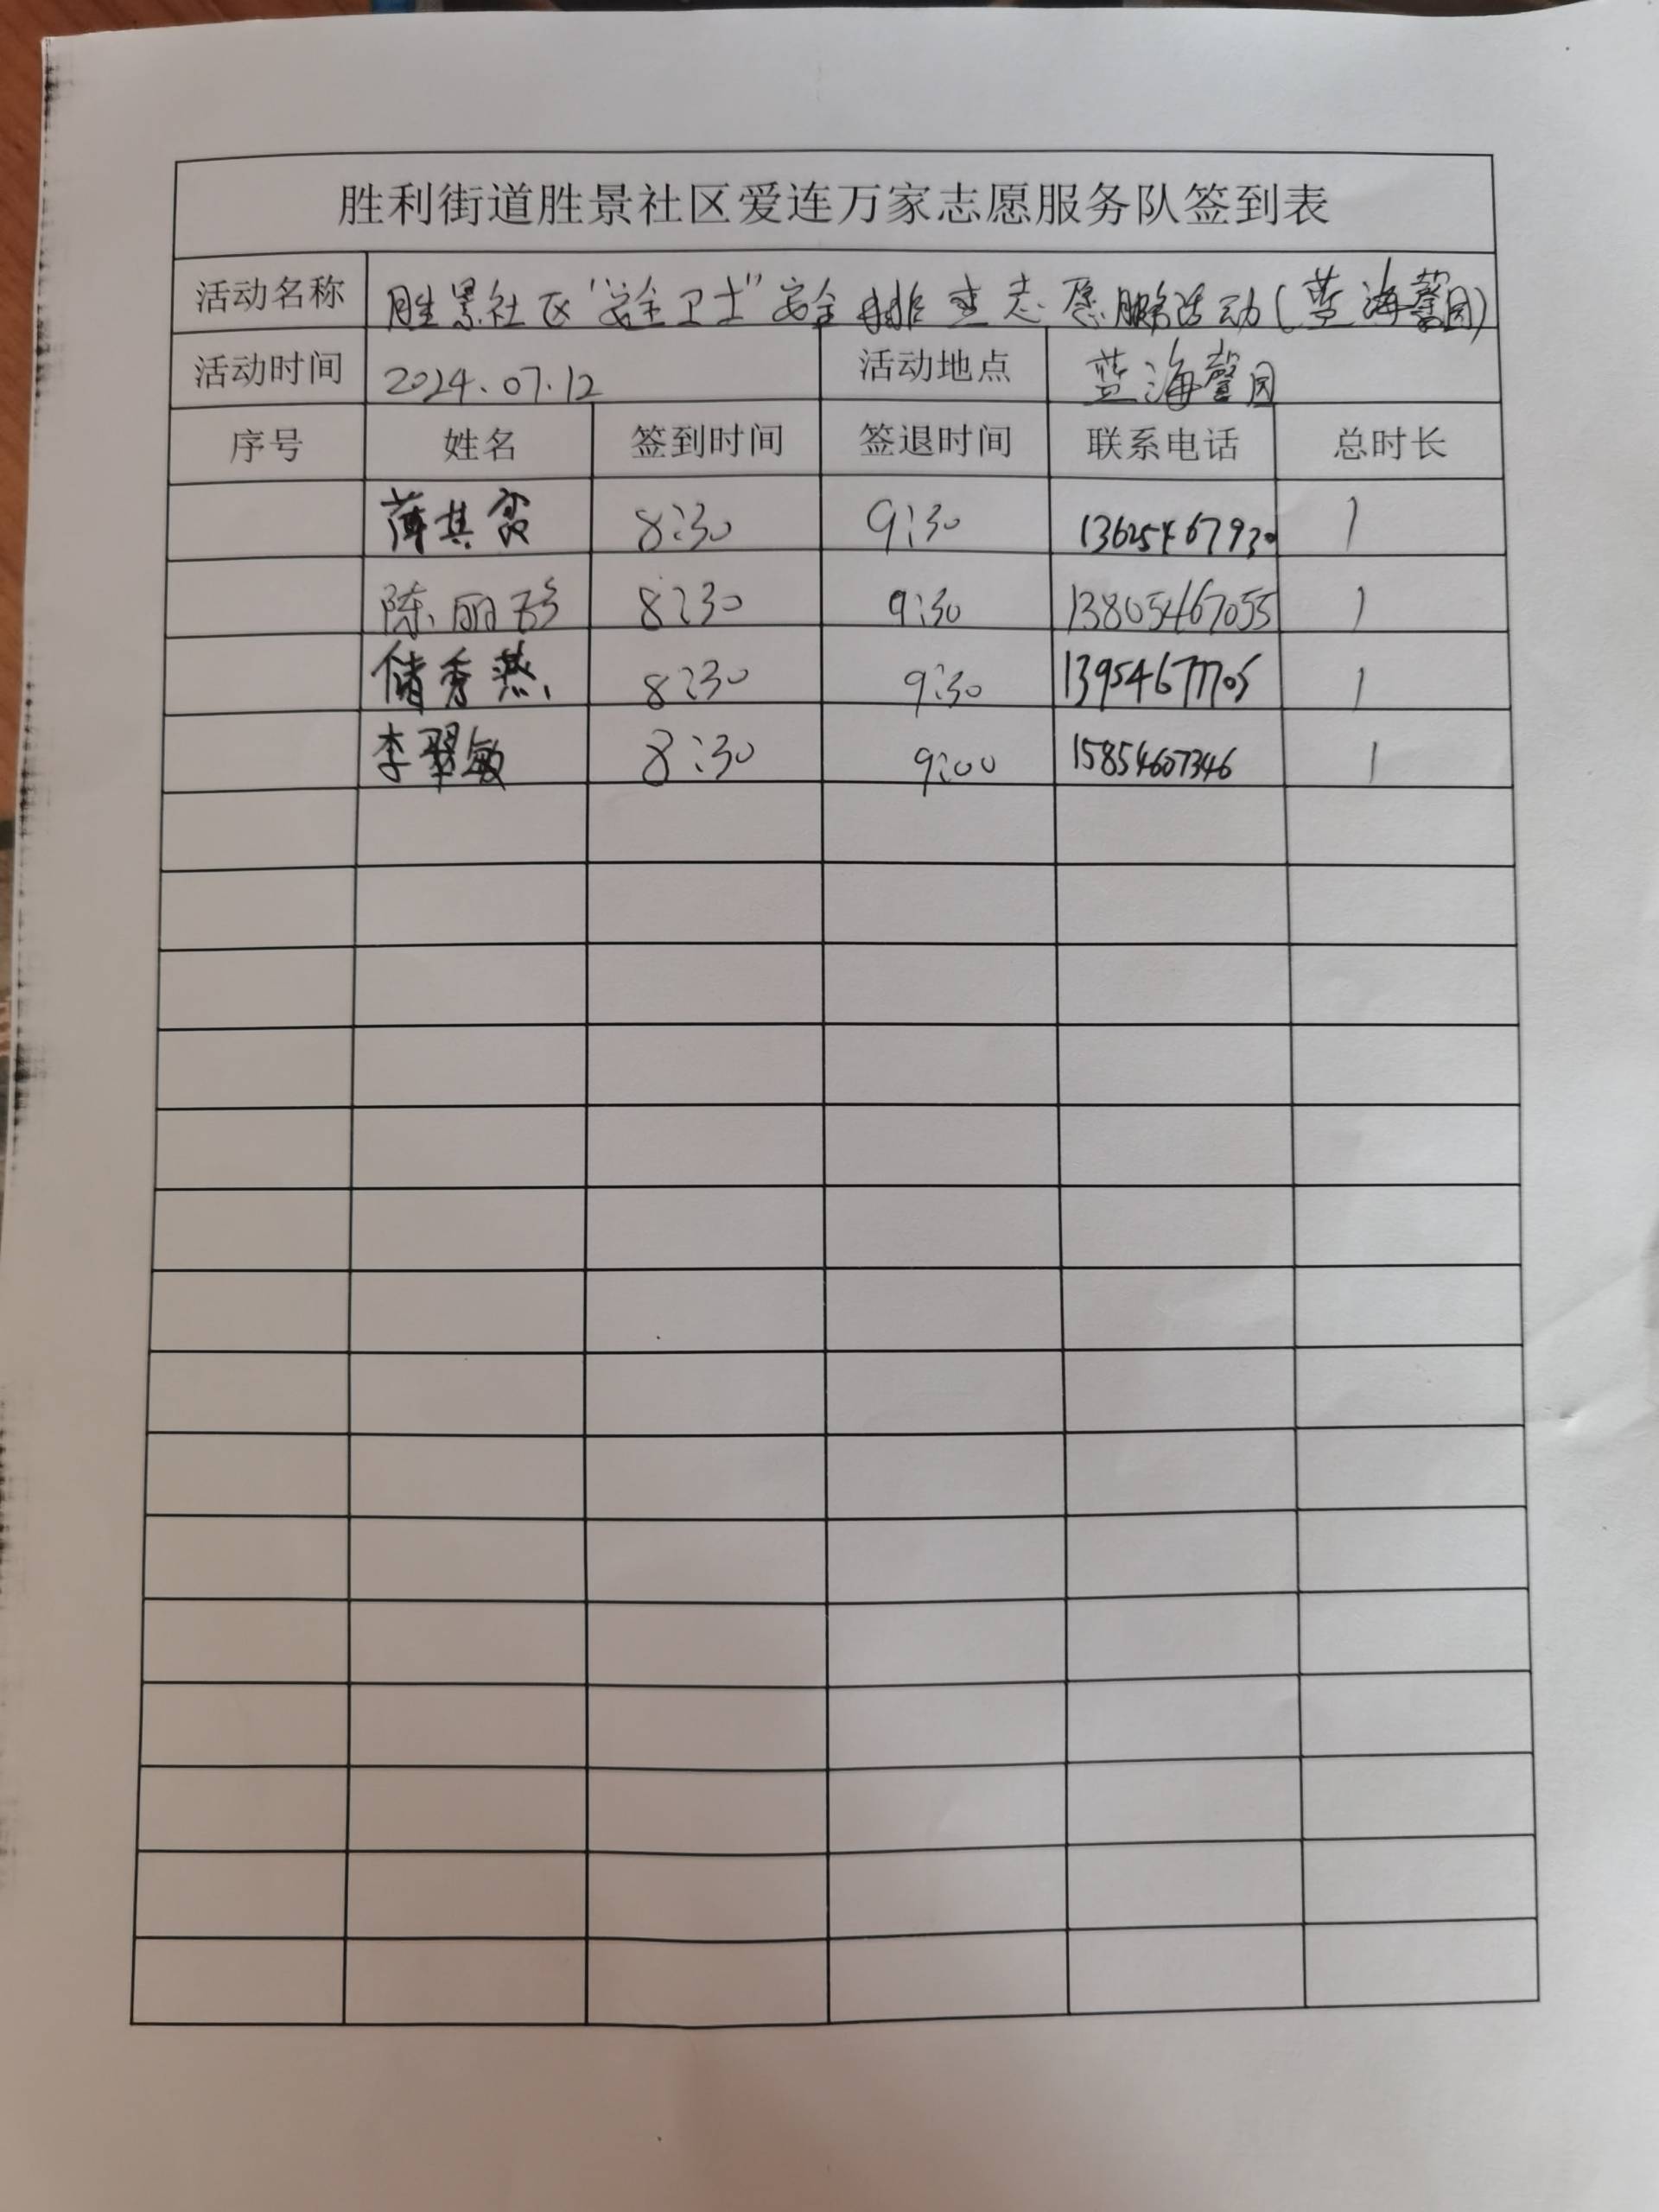 胜利街道胜景社区爱连万家志愿服务队签到表
活动名称 胜景社区"安全卫士"安全排查志愿服务活动(蓝海馨园)
活动时间 2024.07.12 活动地点 蓝海馨园
序号 姓名 签到时间 签退时间 联系电话 总时长
薛其 8:30 9:30 13625467930 1
陈丽珍 8:30 9:30 13805467055 1
储秀燕 8:30 9:30 13954677705 1
李翠敏 8:30 9:00 15854607346 1